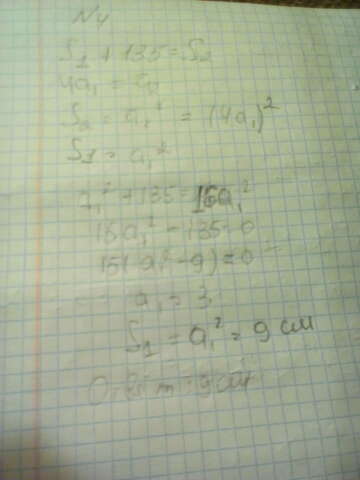 N4
S₁ + 135 = S₂
4a₁ = a₂
S₂ = a₂² = (4a₁)²
S₁ = a₁²
a₁² + 135 = 16a₁²
15a₁² - 135 = 0
15(a₁² - 9) = 0
a₁ = 3
S₁ = a₁² = 9 см